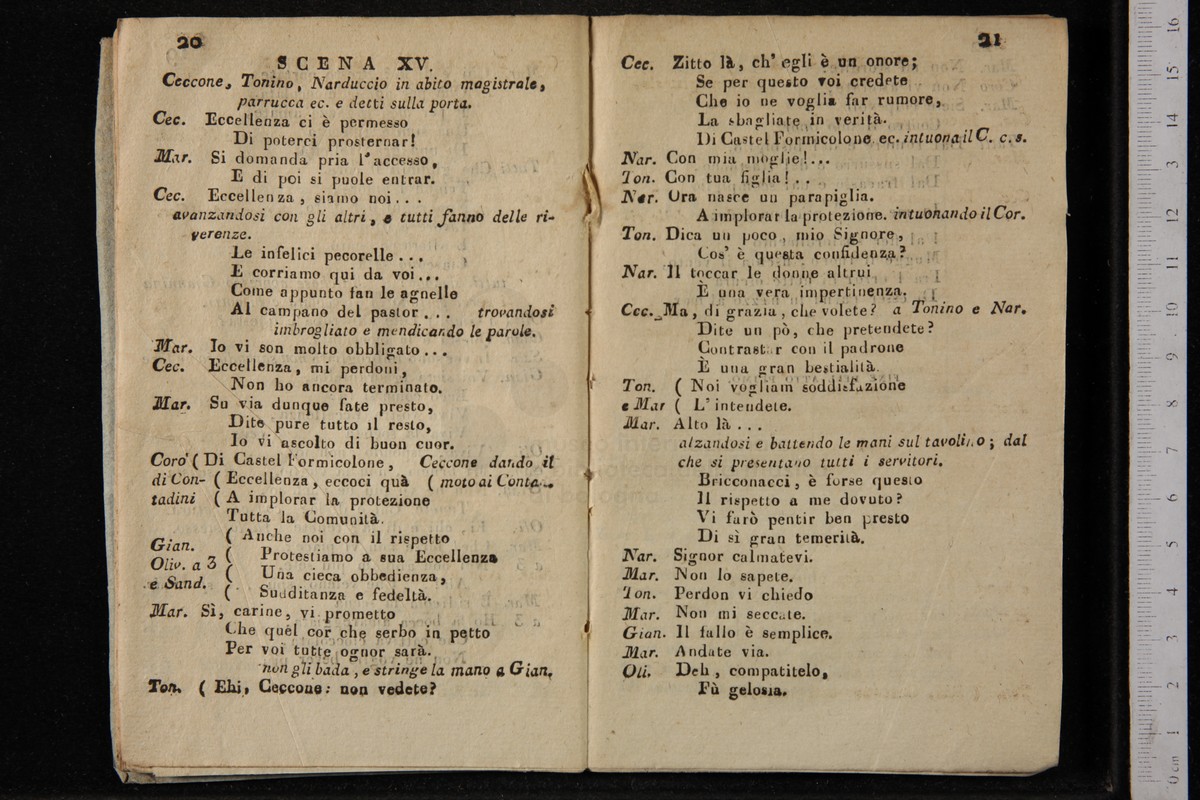 20
SCENA XV.
Ceccone, Tonino, Narduccio in abito magistrale,
parrucca ec. e detti sulla porta.
Cec. Eccellenza ci è permesso
Di poterci prosternar!
Mar. Si domanda pria l'accesso,
E di poi si puole entrar.
Cec. Eccellenza, siamo noi...
avanzandosi con gli altri, e tutti fanno delle ri-
verenze.
Le infelici pecorelle...
E corriamo qui da voi...
Come appunto fan le agnelle
Al campano del pastor... trovandosi
imbrogliato e mendicando le parole.
Mar. Io vi son molto obbligato...
Cec. Eccellenza, mi perdoni,
Non ho ancora terminato.
Mar. Su via dunque fate presto,
Dite pure tutto il resto,
Io vi ascolto di buon cuor.
Coro ( Di Castel Formicolone, Ceccone dando il
di Con- ( Eccellenza, eccoci quà ( moto ai Conta-
tadini ( A implorar la protezione
Tutta la Comunità.
Gian. ( Anche noi con il rispetto
Oliv. a 3 ( Protestiamo a sua Eccellenza
e Sand. ( Una cieca obbedienza,
( Sudditanza e fedeltà.
Mar. Sì, carine, vi prometto
Che quel cor che serbo in petto
Per voi tutte ognor sarà.
non gli bada, e stringe la mano a Gian.
Ton. ( Ehi, Ceccone: non vedete?
21
Cec. Zitto là, ch' egli è un onore;
Se per questo voi credete
Che io ne voglia far rumore,
La sbagliate in verità.
Di Castel Formicolone ec. intuona il C. c. s.
Nar. Con mia moglie!...
Ton. Con tua figlia!...
Nar. Ora nasce un parapiglia.
A implorar la protezione. intuonando il Cor.
Ton. Dica un poco, mio Signore,
Cos' è questa confidenza?
Nar. Il toccar le donne altrui
È una vera impertinenza.
Cec. Ma, di grazia, che volete? a Tonino e Nar.
Dite un pò, che pretendete?
Contrastar con il padrone
È una gran bestialità.
Ton. ( Noi vogliam soddisfazione
e Mar ( L' intendete.
Mar. Alto là...
alzandosi e battendo le mani sul tavolino; dal
che si presentano tutti i servitori.
Bricconacci, è forse questo
Il rispetto a me dovuto?
Vi farò pentir ben presto
Di sì gran temerità.
Nar. Signor calmatevi.
Mar. Non lo sapete.
Ton. Perdon vi chiedo
Mar. Non mi seccate.
Gian. Il fallo è semplice.
Mar. Andate via.
Oli. Deh, compatitelo,
Fù gelosia.
0 cm 1 2 3 4 5 6 7 8 9 10 11 12 13 14 15 16